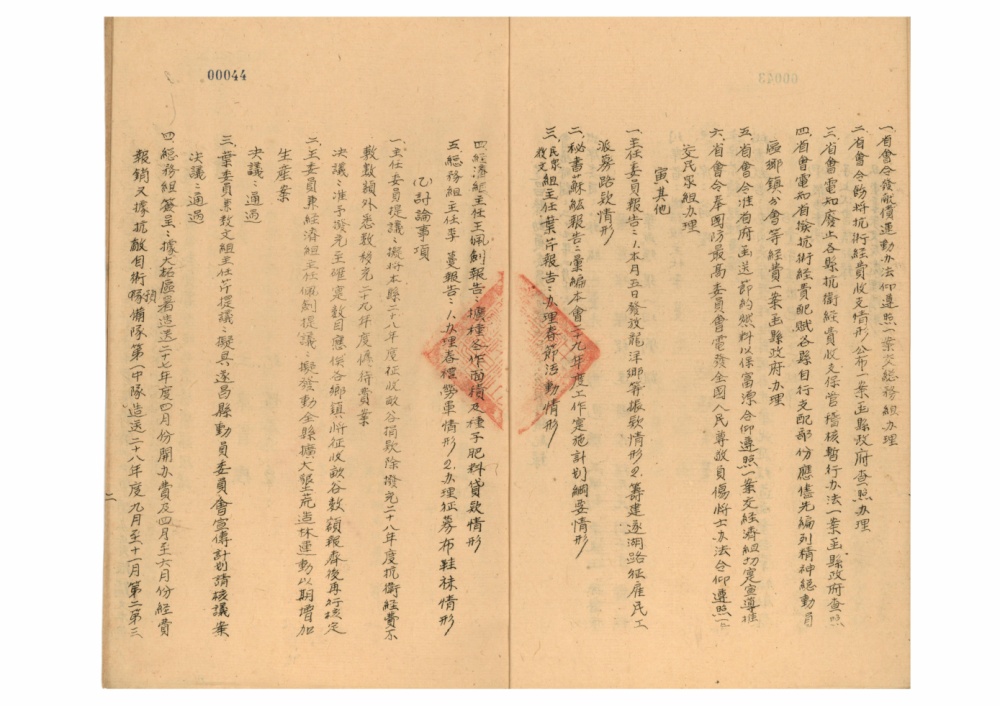 一省會令發獻價運動办法仰遵照一案交總務組办理
二省會令飭將抗術經費收支情形公布一案函縣政府查照办理
三省會電知廢止各縣抗衛經費收支保管稽核暫行办法一案函縣政府查照
四省會電知省撥抗術經費配賦各縣自行支配部份應儘先編列精神總動員
區鄉鎮分會等經費一案函縣政府办理
五省會令准省府函送節約燃料以保富源令仰遵照一案交經濟組切寔宣導推
六省會令奉國防最高委員會電發全國人民尊敬員傷將士办法令仰遵照一
交民眾組办理
寅其他
一主任委員報告：1.本月五日發放龍洋鄉等振欵情形2.籌建遂湖路征雇民工
派募路欵情形
二秘書蘇紘報告：彙編本會二十九年度工作寔施計划綱要情形
三民眾組主任葉芹報告：办理春節活動情形
教文
四經濟組主任王佩劍報告：擴種冬作面積及種子肥料貸欵情形
五總務組主任李蔓報告：1.办理春禮勞軍情形2.办理征募布鞋袜情形
(乙)討論事項
一主任委員提議：擬將本縣二十八年度征收畝谷捐欵除撥充二十八年度抗衛經費不
敷數額外悉數移充二十九年度優待費案
決議：准予撥充主確寔數目應俟各鄉鎮將征收畝谷數額報齊後再行核定
二王委員兼經濟組主任佩劍提議：擬發動全縣擴大墾荒造林運動以期增加
生産案
決議：通過
三葉委員兼教文組主任芹提議：擬具遂昌縣動員委員會宣傳計划請核議案
決議：通過
四總務組簽呈：據大柘區署造送二十七年度四月份開办費及四月至六月份經費
報銷又據抗敵自術隊預備隊第一中隊造送二十八年度九月至十一月第二第三
二
00044
00043